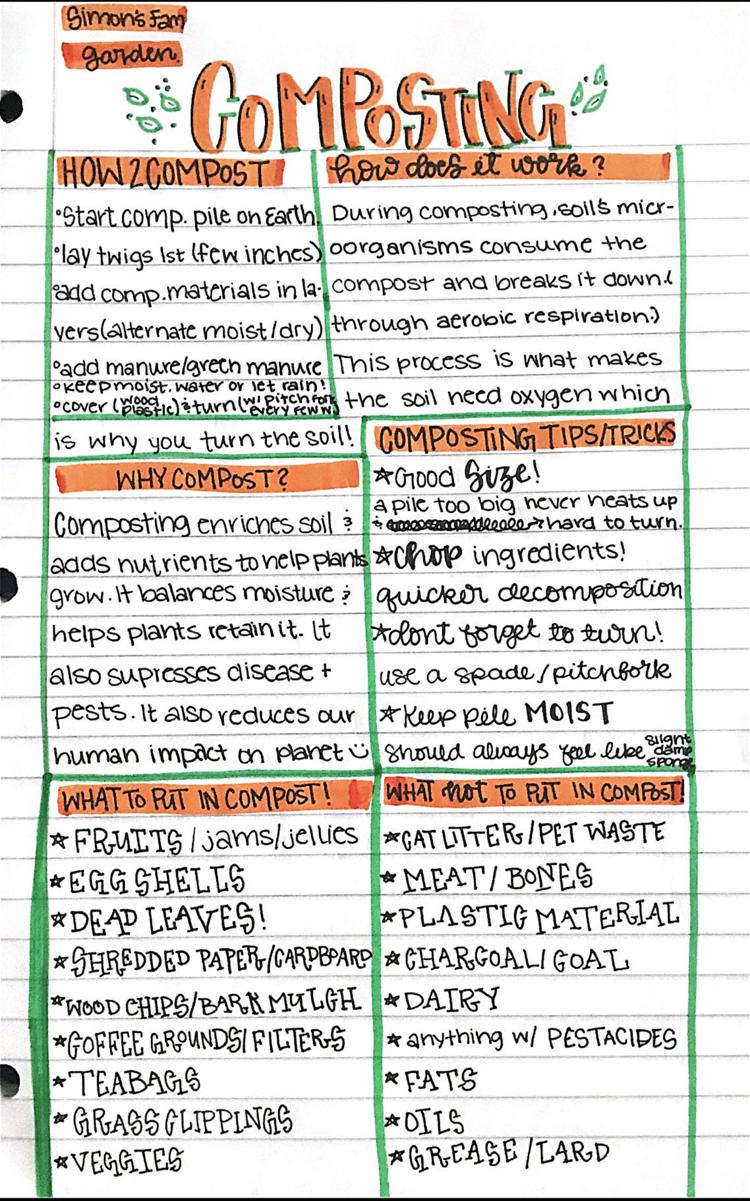 Simon's Fam
garden.
COMPOSTING
HOW 2 COMPOST
°Start comp. pile on Earth.
°lay twigs 1st (few inches)
°add comp. materials in la-
yers (alternate moist/dry)
°add manure/green manure
°keep moist. water or let rain!
°cover (wood plastic) & turn (w/ pitchfork every few w)
how does it work?
During composting, soil's micr-
oorganisms consume the
compost and breaks it down!
through aerobic respiration:)
This process is what makes
the soil need oxygen which
is why you turn the soil!
WHY COMPOST?
Composting enriches soil &
adds nutrients to help plants
grow. It balances moisture &
helps plants retain it. It
also supresses disease +
pests. It also reduces our
human impact on planet ☺
COMPOSTING TIPS/TRICKS
☆Good Size!
a pile too big never heats up
& → hard to turn.
☆Chop ingredients!
quicker decomposition
☆dont forget to turn!
use a spade/pitchfork
☆Keep pile MOIST
should always feel like slight damp sponge
WHAT TO PUT IN COMPOST!
☆FRUITS/jams/jellies
☆EGG SHELLS
☆DEAD LEAVES!
☆SHREDDED PAPER/CARDBOARD
☆WOOD CHIPS/BARK MULCH
☆COFFEE GROUNDS/FILTERS
☆TEABAGS
☆GRASS CLIPPINGS
☆VEGGIES
WHAT not TO PUT IN COMPOST!
☆CAT LITTER/PET WASTE
☆MEAT/BONES
☆PLASTIC MATERIAL
☆CHARCOAL/COAL
☆DAIRY
☆anything w/ PESTACIDES
☆FATS
☆OILS
☆GREASE/LARD